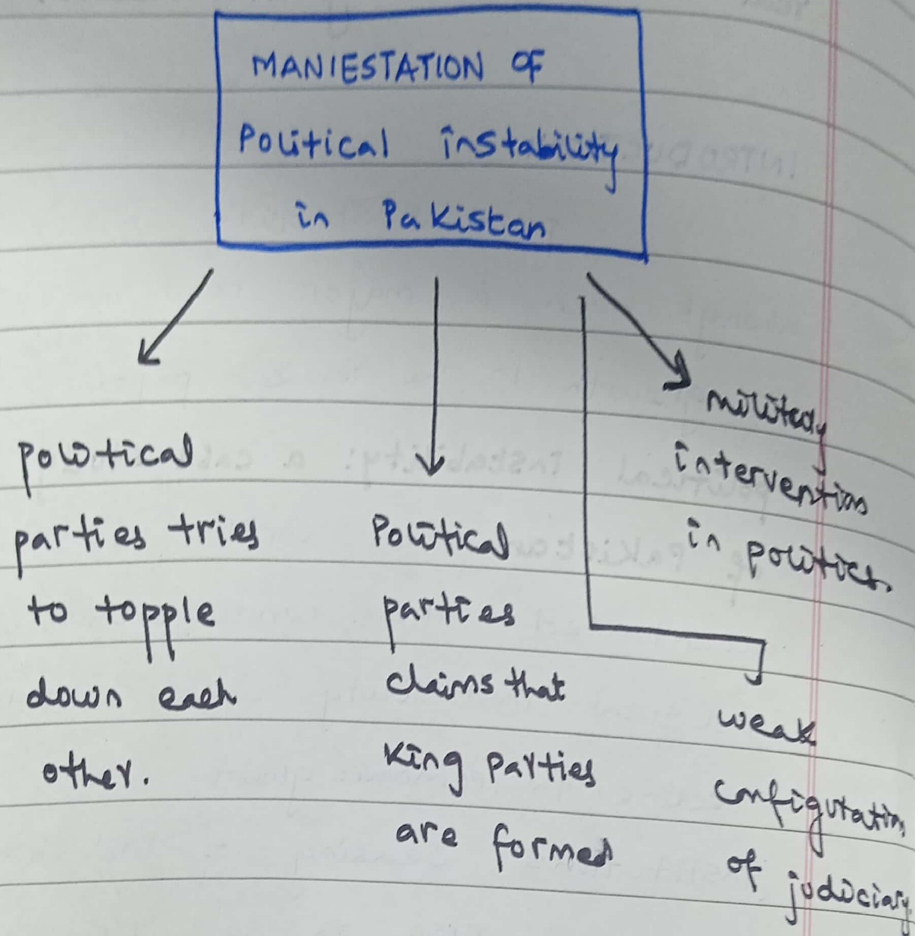 MANIESTATION OF
Political instability
in Pakistan
political
parties tries
to topple
down each
other.
Political
parties
claims that
King parties
are formed
militedy
intervention
in politics.
weak
configutation
of judiciary